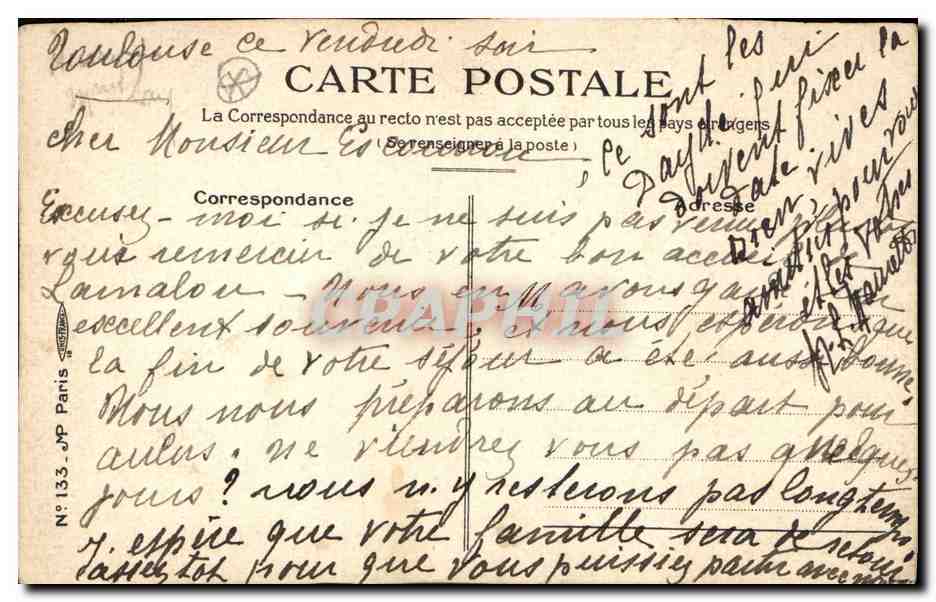 Toulouse ce Vendredi soir
CARTE POSTALE
La Correspondance au recto n'est pas acceptée par tous les pays étrangers
(Se renseigner à la poste)
cher Monsieur
Correspondance
Adresse
Excusez-moi si je ne suis pas venu
vous remercier de votre bon accueil
Lamalou - Nous en avons gardé un
excellent souvenir, et nous espérons que
la fin de votre séjour a été aussi bonne.
Nous nous préparons au départ pour
aulus. ne viendrez vous pas quelques
jours? nous n'y resterons pas longtemps
J'espère que votre famille sera de retour
assez tot pour que vous puissiez partir avec
ce sont les
qui
doivent fixer la
date
bien vives
amitiés pour vous
et les votres
CPAPHIL
N° 133 - Paris